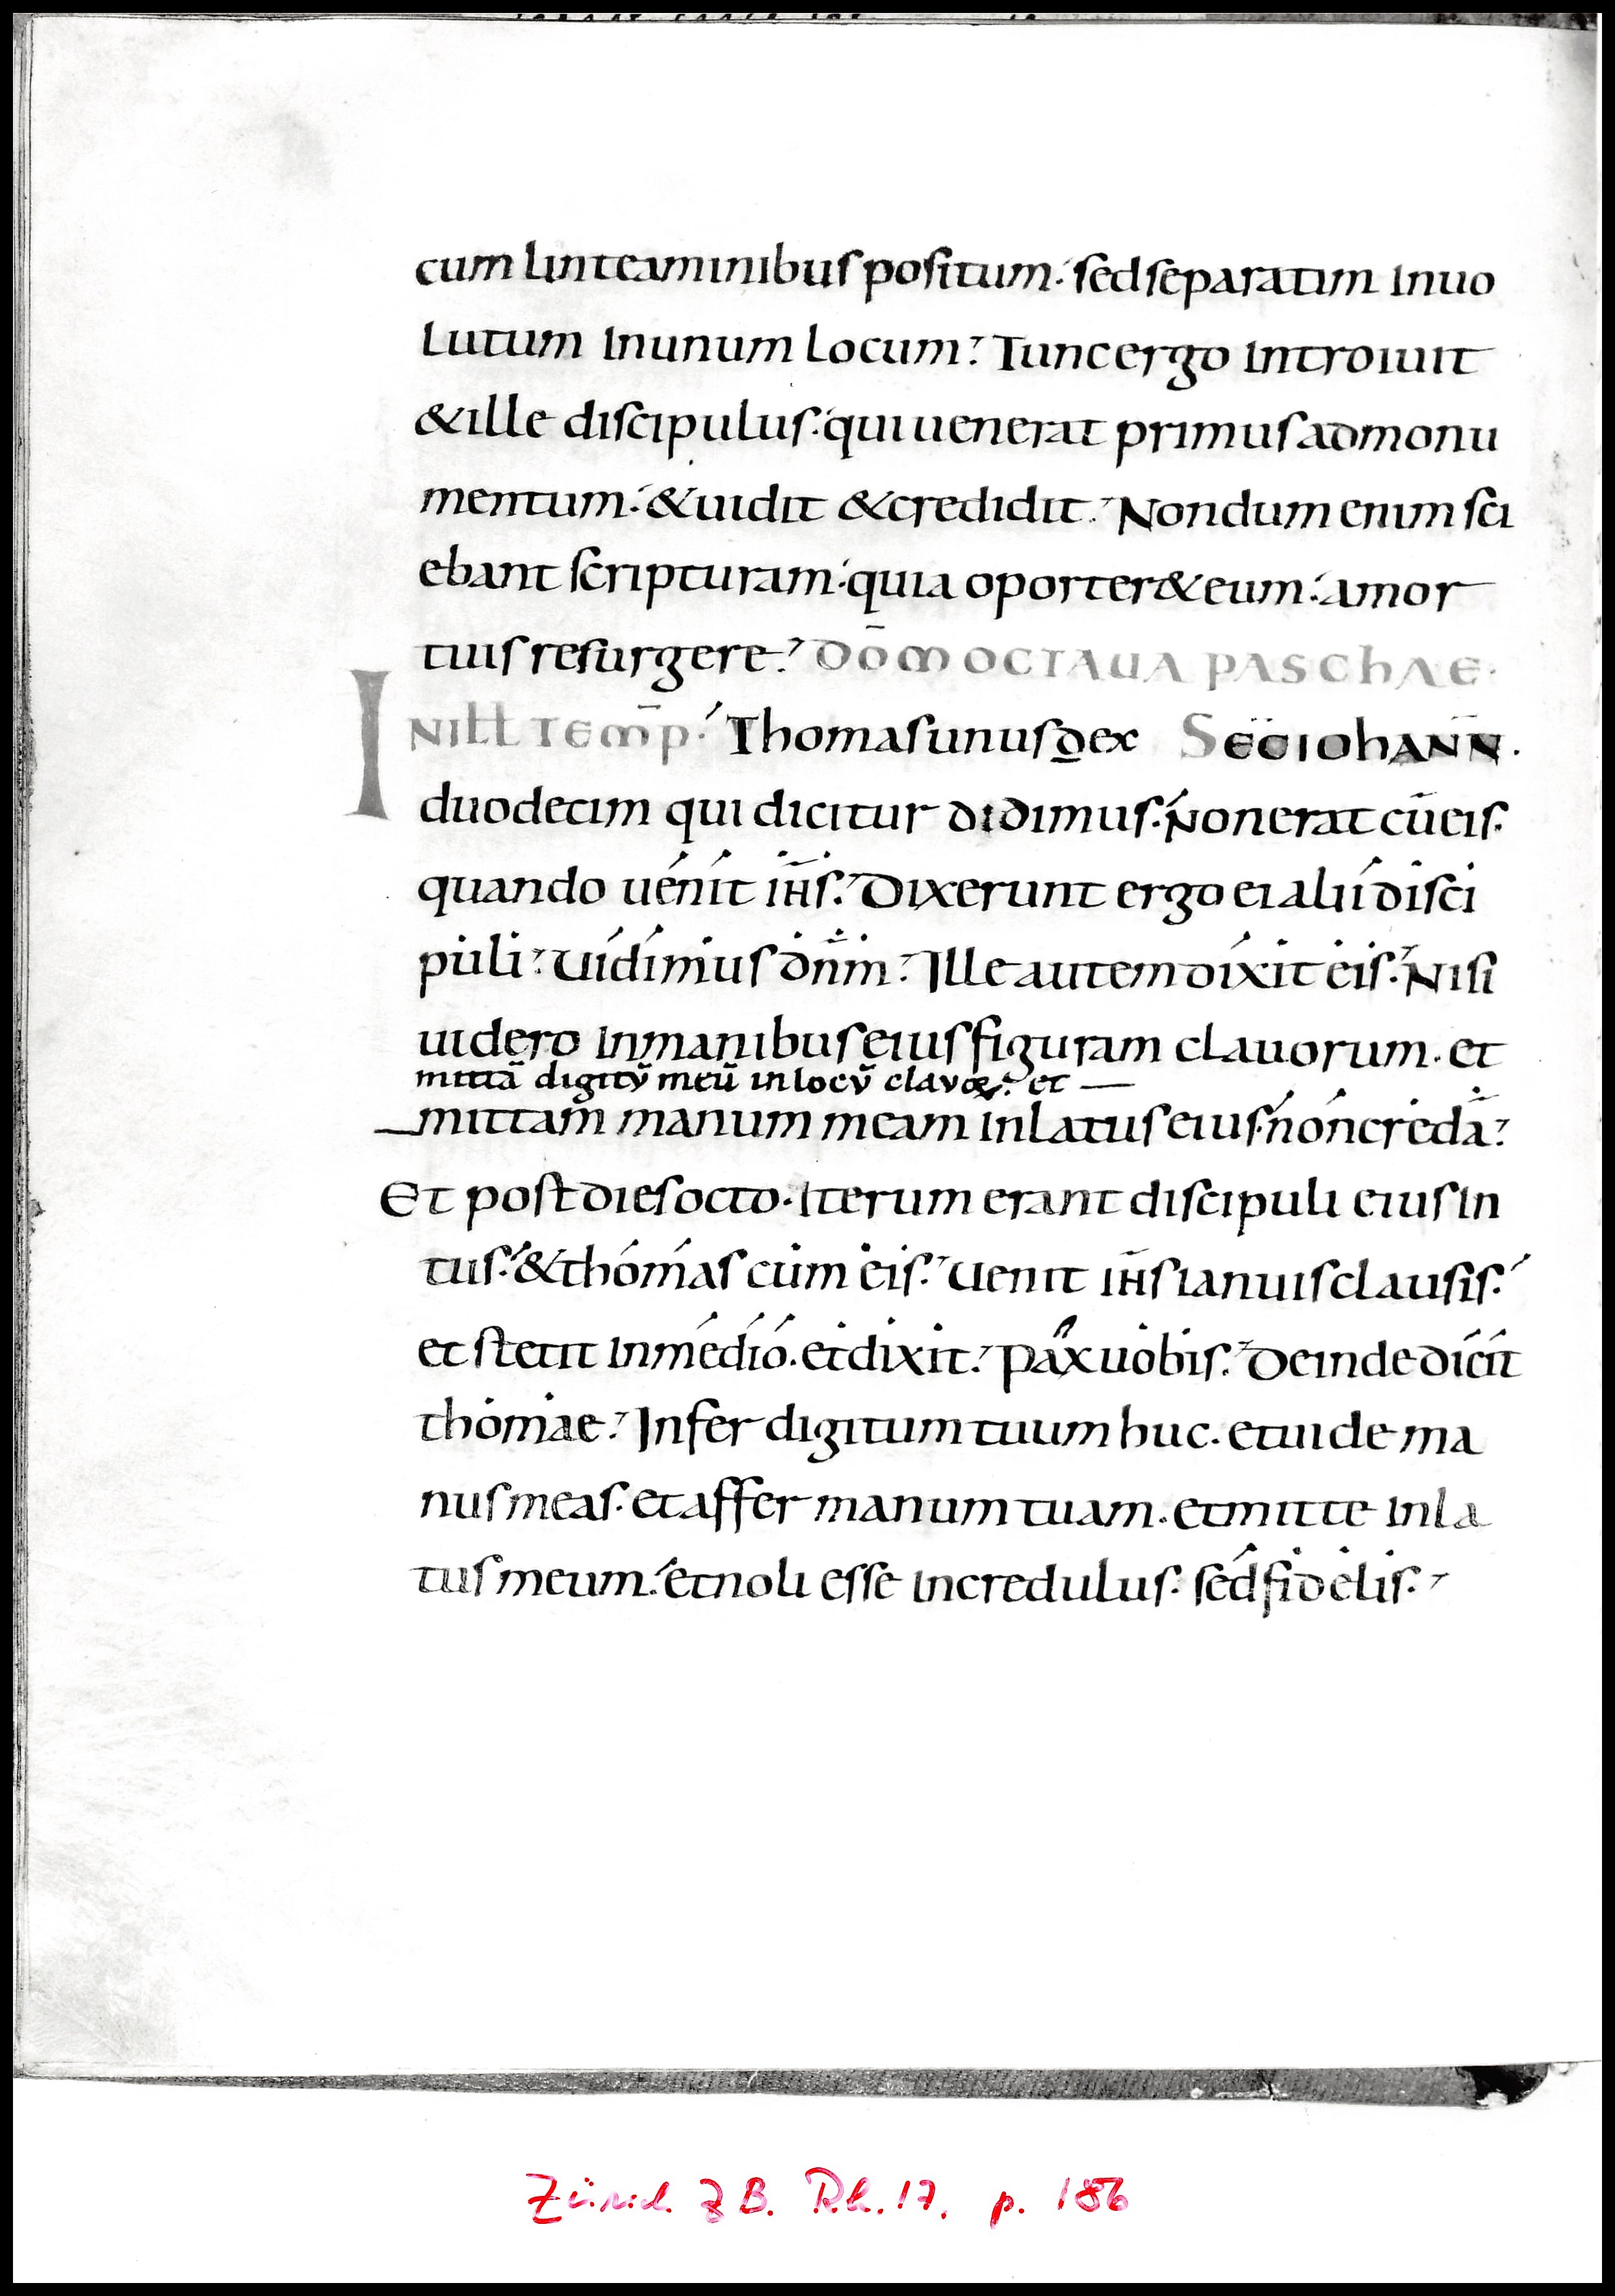 cum linteaminibus positum. sed separatim inuo
lutum inunum locum. Tunc ergo introiuit
& ille discipulus. qui uenerat primus admonu
mentum. & uidit & credidit. Nondum enim sci
ebant scripturam. quia oporter& eum. amor
tuis resurgere. DOM̄ OCTAUA PASCHAE.
INILL TEMP̄. Thomas unus dex SEC̄ IOHANN̄.
duodecim qui dicitur didimus. Non erat cū eis.
quando uenit ih̄s. Dixerunt ergo ei alii disci
puli. Uidimus dn̄m. Ille autem dixit eis. Nisi
uidero inmanibus eius figuram clauorum. et
mittā digitū meū in locū clavoꝝ. et
mittam manum meam inlatus eius. non credā.
Et post dies octo. iterum erant discipuli eius in
tus. & thomas cum eis. Uenit ih̄s ianuis clausis.
et stetit inmedio. et dixit. Pax uobis. Deinde dicit
thomae. Infer digitum tuum huc. et uide ma
nus meas. et affer manum tuam. et mitte inla
tus meum. et noli esse incredulus. sed fidelis.
Zürich ZB. Rh. 17. p. 186